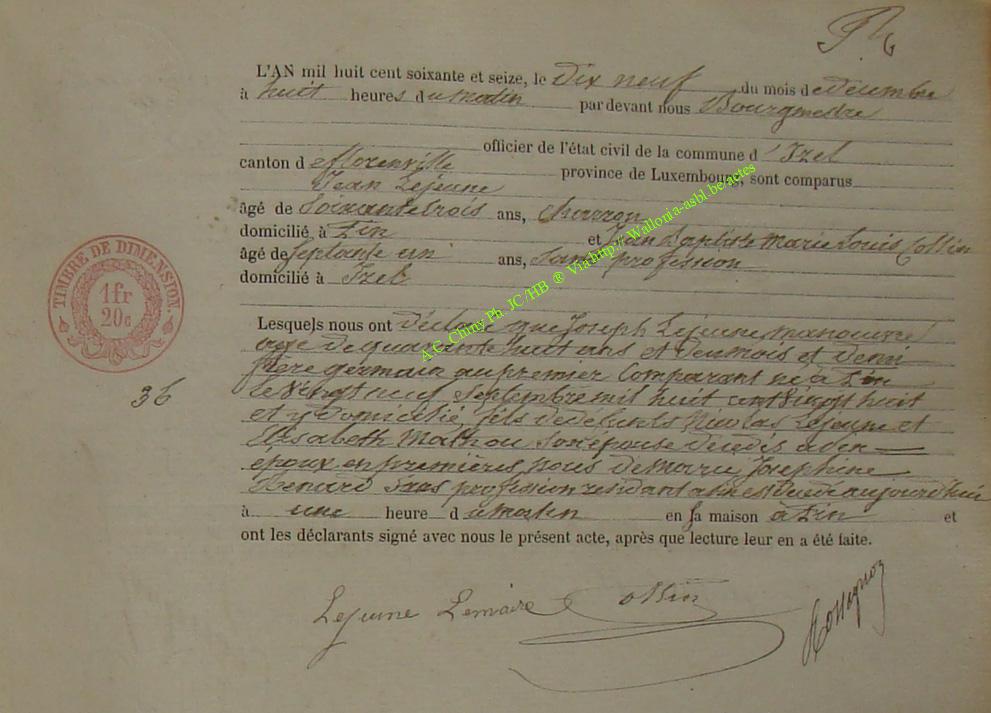 L'AN mil huit cent soixante et seize, le Dix neuf du mois d e Décembre
à huit heures d u matin par devant nous Bourgmestre
officier de l'état civil de la commune d 'Izel
canton d e Florenville province de Luxembourg, sont comparus
Jean Lejeune
âgé de Soixante trois ans, charron
domicilié à Pin et Jean Baptiste Marie Louis Collin
âgé de Septante un ans, Sans profession
domicilié à Izel
TIMBRE DE DIMENSION.
1fr
20c
A.C. Chiny Ph. JC/HB ® Via http://Wallonia-asbl.be/actes
Lesquels nous ont Déclaré que Joseph Lejeune manoeuvre
agé de quarante huit ans et Deux mois et demi
frère germain au premier Comparant né à Pin
36
le vingt neuf Septembre mil huit cent vingt huit
et y domicilié, fils de défunts Nicolas Lejeune et
Elisabeth Son épouse décédés a Pin
époux en premières noces de Marie Joséphine
Henard Sans profession residant est décédé aujourd'hui
à une heure d u matin en sa maison à Pin et
ont les déclarants signé avec nous le présent acte, après que lecture leur en a été faite.
Lejeune Lemaire Collin Rossignon